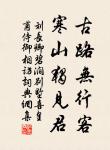 古路無行客
寒山獨見君
劉長卿碧澗別墅喜皇
甫侍御相訪詞典網集